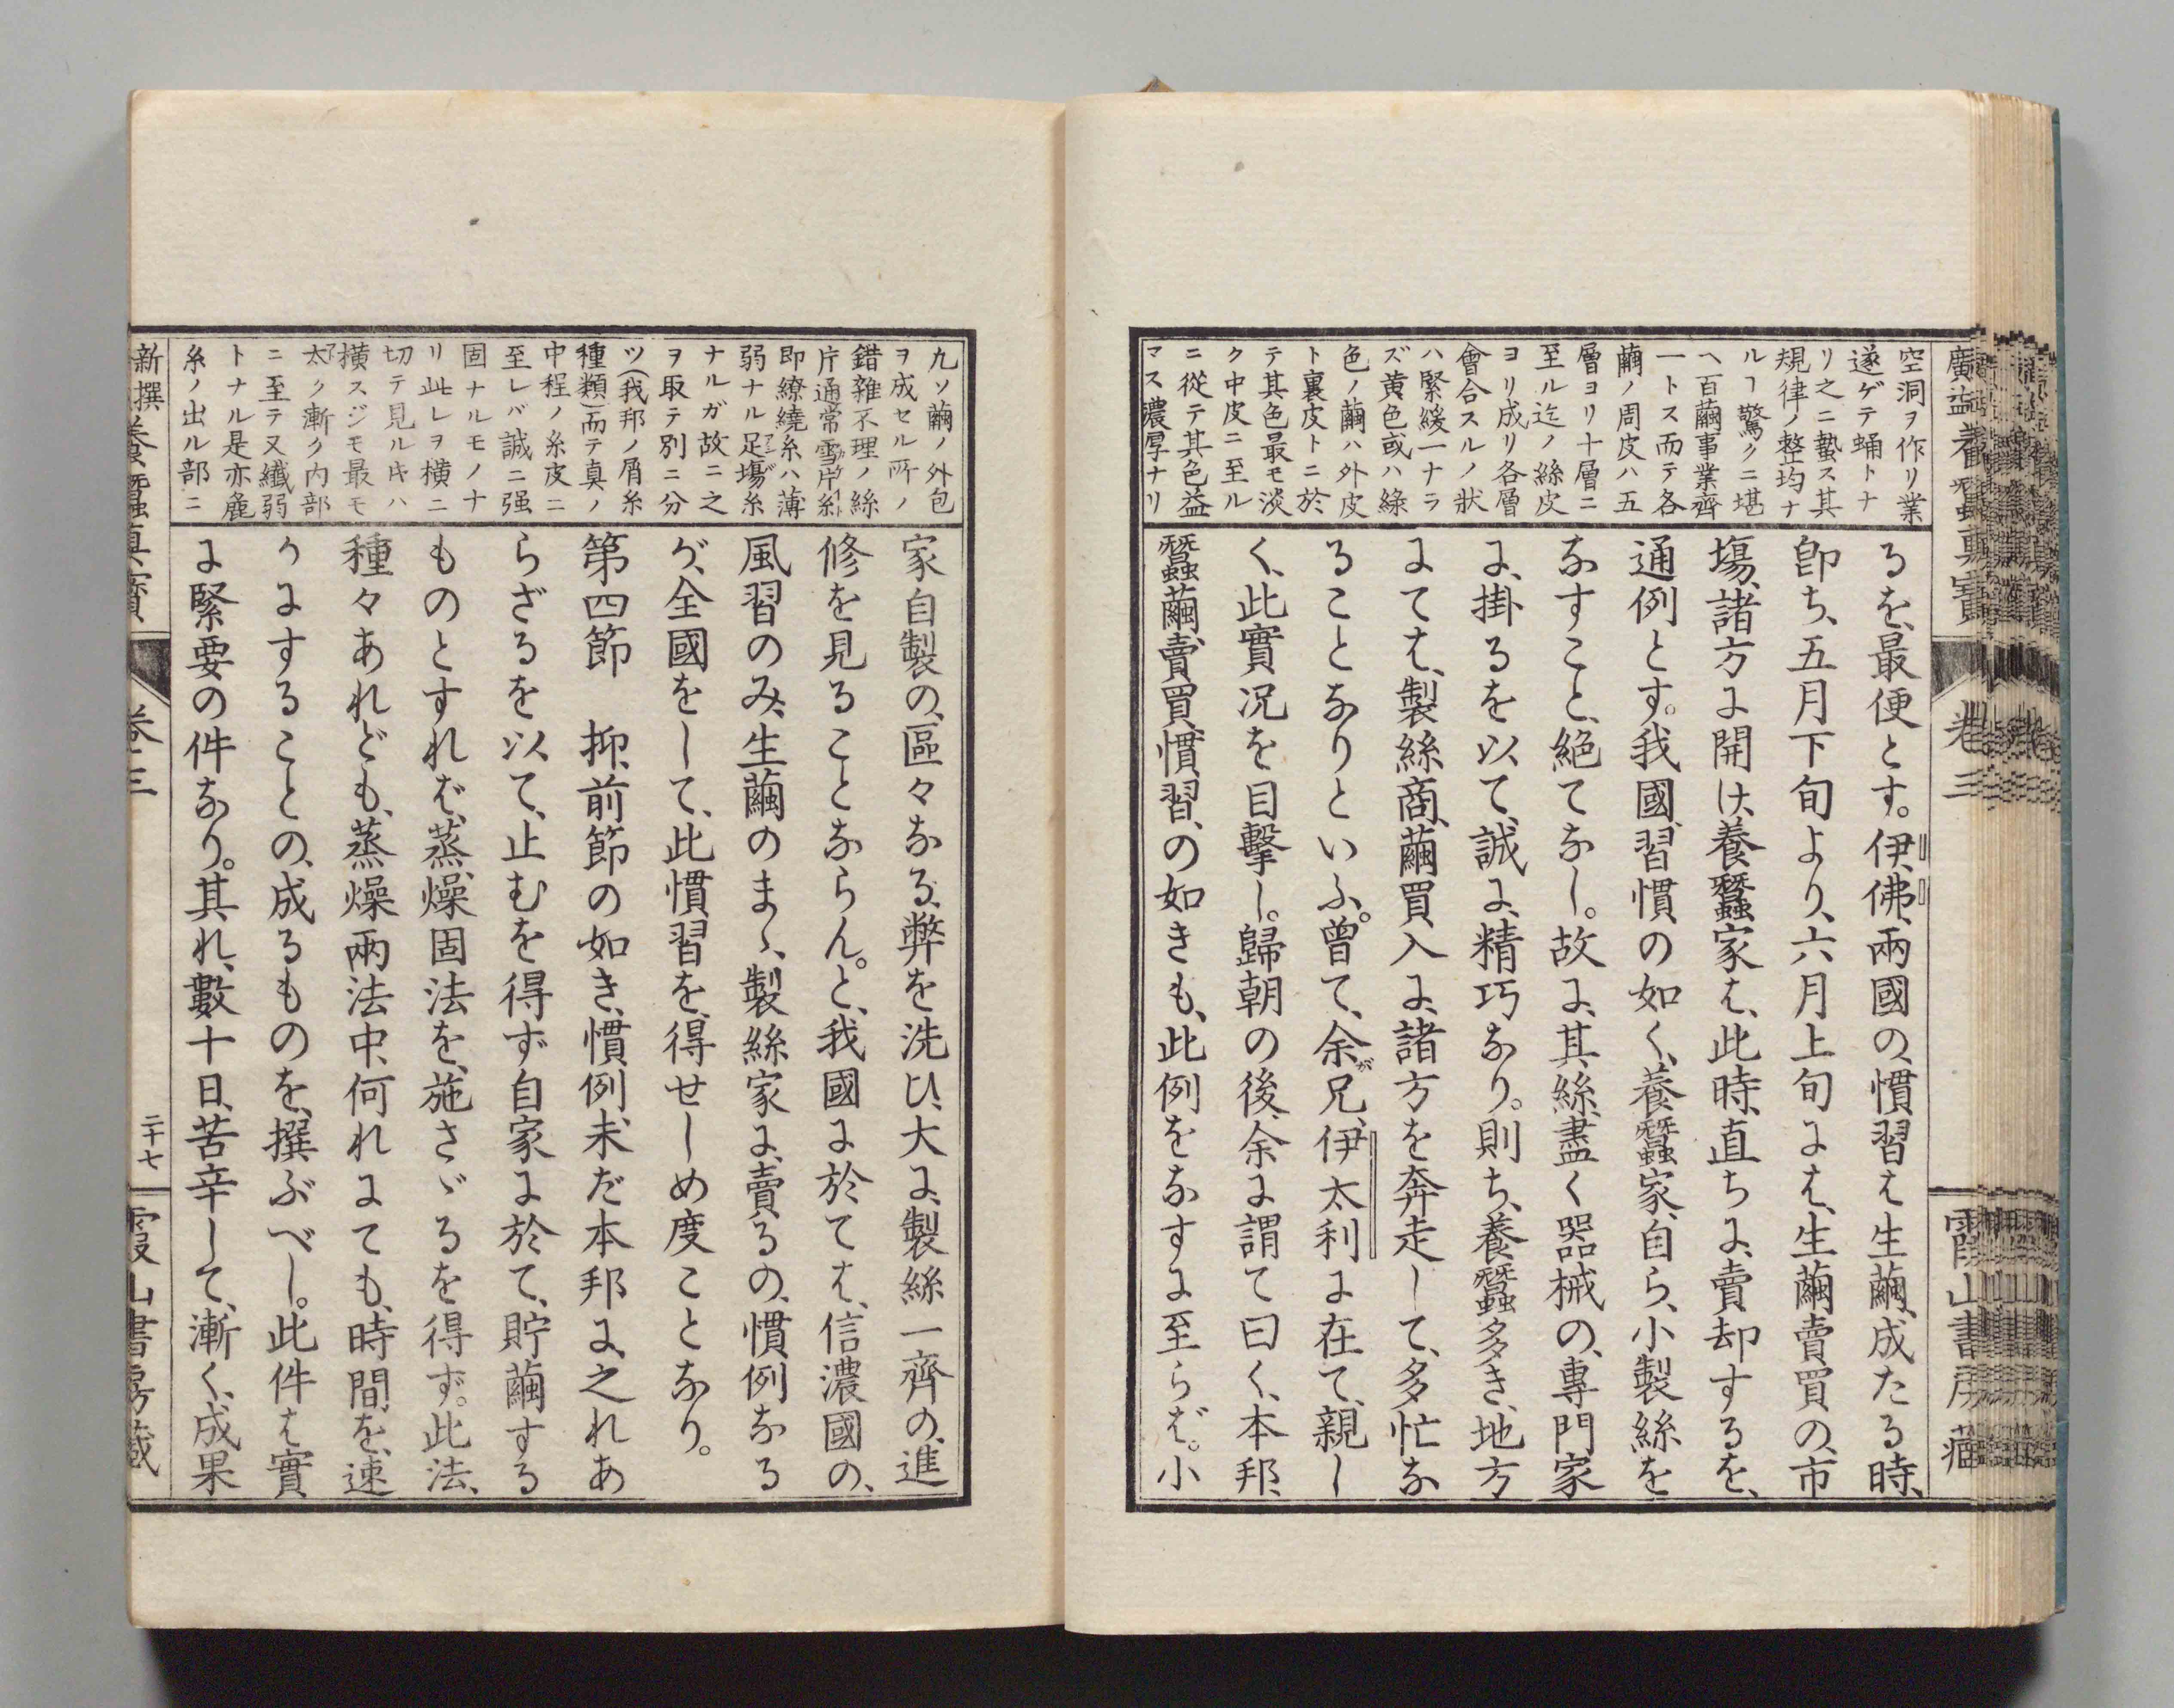 廣益養蠶眞寶
卷三
霞山書房藏
空洞ヲ作リ業
遂ゲテ蛹トナ
リ之ニ蟄ス其
規律ノ整均ナ
ルヿ驚クニ堪
ヘ百繭事業齊
一トス而テ各
繭ノ周皮ハ五
層ヨリ十層ニ
至ル迄ノ絲皮
ヨリ成リ各層
會合スルノ狀
ハ緊緩一ナラ
ズ黄色或ハ綠
色ノ繭ハ外皮
ト裏皮トニ於
テ其色最モ淡
ク中皮ニ至ル
ニ從テ其色益
マス濃厚ナリ
るを、最便とす。伊佛、兩國の、慣習は生繭、成たる時、
卽ち、五月下旬より、六月上旬には、生繭賣買の、市
塲、諸方に開け、養蠶家は、此時、直ちに、賣却するを、
通例とす。我國、習慣、の如く、養蠶家、自ら、小製絲を
なすこと、絕てなし。故に、其絲、盡く器械の、專門家
に、掛るを以て、誠に、精巧なり。則ち、養蠶多き、地方
にては、製絲商、繭買入に、諸方を奔走して、多忙な
ることなりといふ。曾て、余が兄、伊太利に在て、親し
く、此實況を目擊し。歸朝の後、余に謂て曰く、本邦、
蠶繭、賣買、慣習、の如きも、此例をなすに至らば。小
九ソ繭ノ外包
ヲ成セル所ノ
錯雜不理ノ絲
片通常雪片絲
即繚繞糸ハ薄
弱ナル足塲糸
ナルガ故ニ之
ヲ取テ別ニ分
ツ(我邦ノ屑糸
種類)而テ真ノ
中程ノ糸皮ニ
至レバ誠ニ强
固ナルモノナ
リ此レヲ橫ニ
切テ見ルキハ
橫スジモ最モ
太ク漸ク内部
ニ至テ又纖弱
トナル是亦麁
糸ノ出ル部ニ
家自製の、區々なる、弊を洗ひ、大に、製絲一齊の、進
修を見ることならん。と、我國に於ては、信濃國の、
風習のみ、生繭のまゝ、製絲家に、賣るの、慣例なる
が、全國をして、此慣習を、得せしめ度ことなり。
第四節　抑、前節の如き、慣例、未だ本邦に、之れあ
らざるを以て、止むを得ず自家に於て、貯繭する
ものとすれば、蒸、燥固法を、施さゞるを得ず。此法、
種々あれども、蒸燥兩法中、何れにても、時間を、速
かにすることの、成るものを、撰ぶべし。此件は、實
に緊要の件なり。其れ、數十日、苦辛して、漸く、成果
新撰養蠶眞寶
卷三
二十七
霞山書房藏